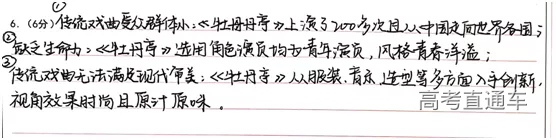 6.(6分)①传统戏曲受众群体小:《牡丹亭》上演了200多次且从中国走向世界各国;
②缺乏生命力:《牡丹亭》选用角色演员均为青年演员,风格青春洋溢;
③传统戏曲无法满足现代审美:《牡丹亭》从服装、音乐、造型等多方面入手创新,
视角效果时尚且原汁原味。
高考直通车